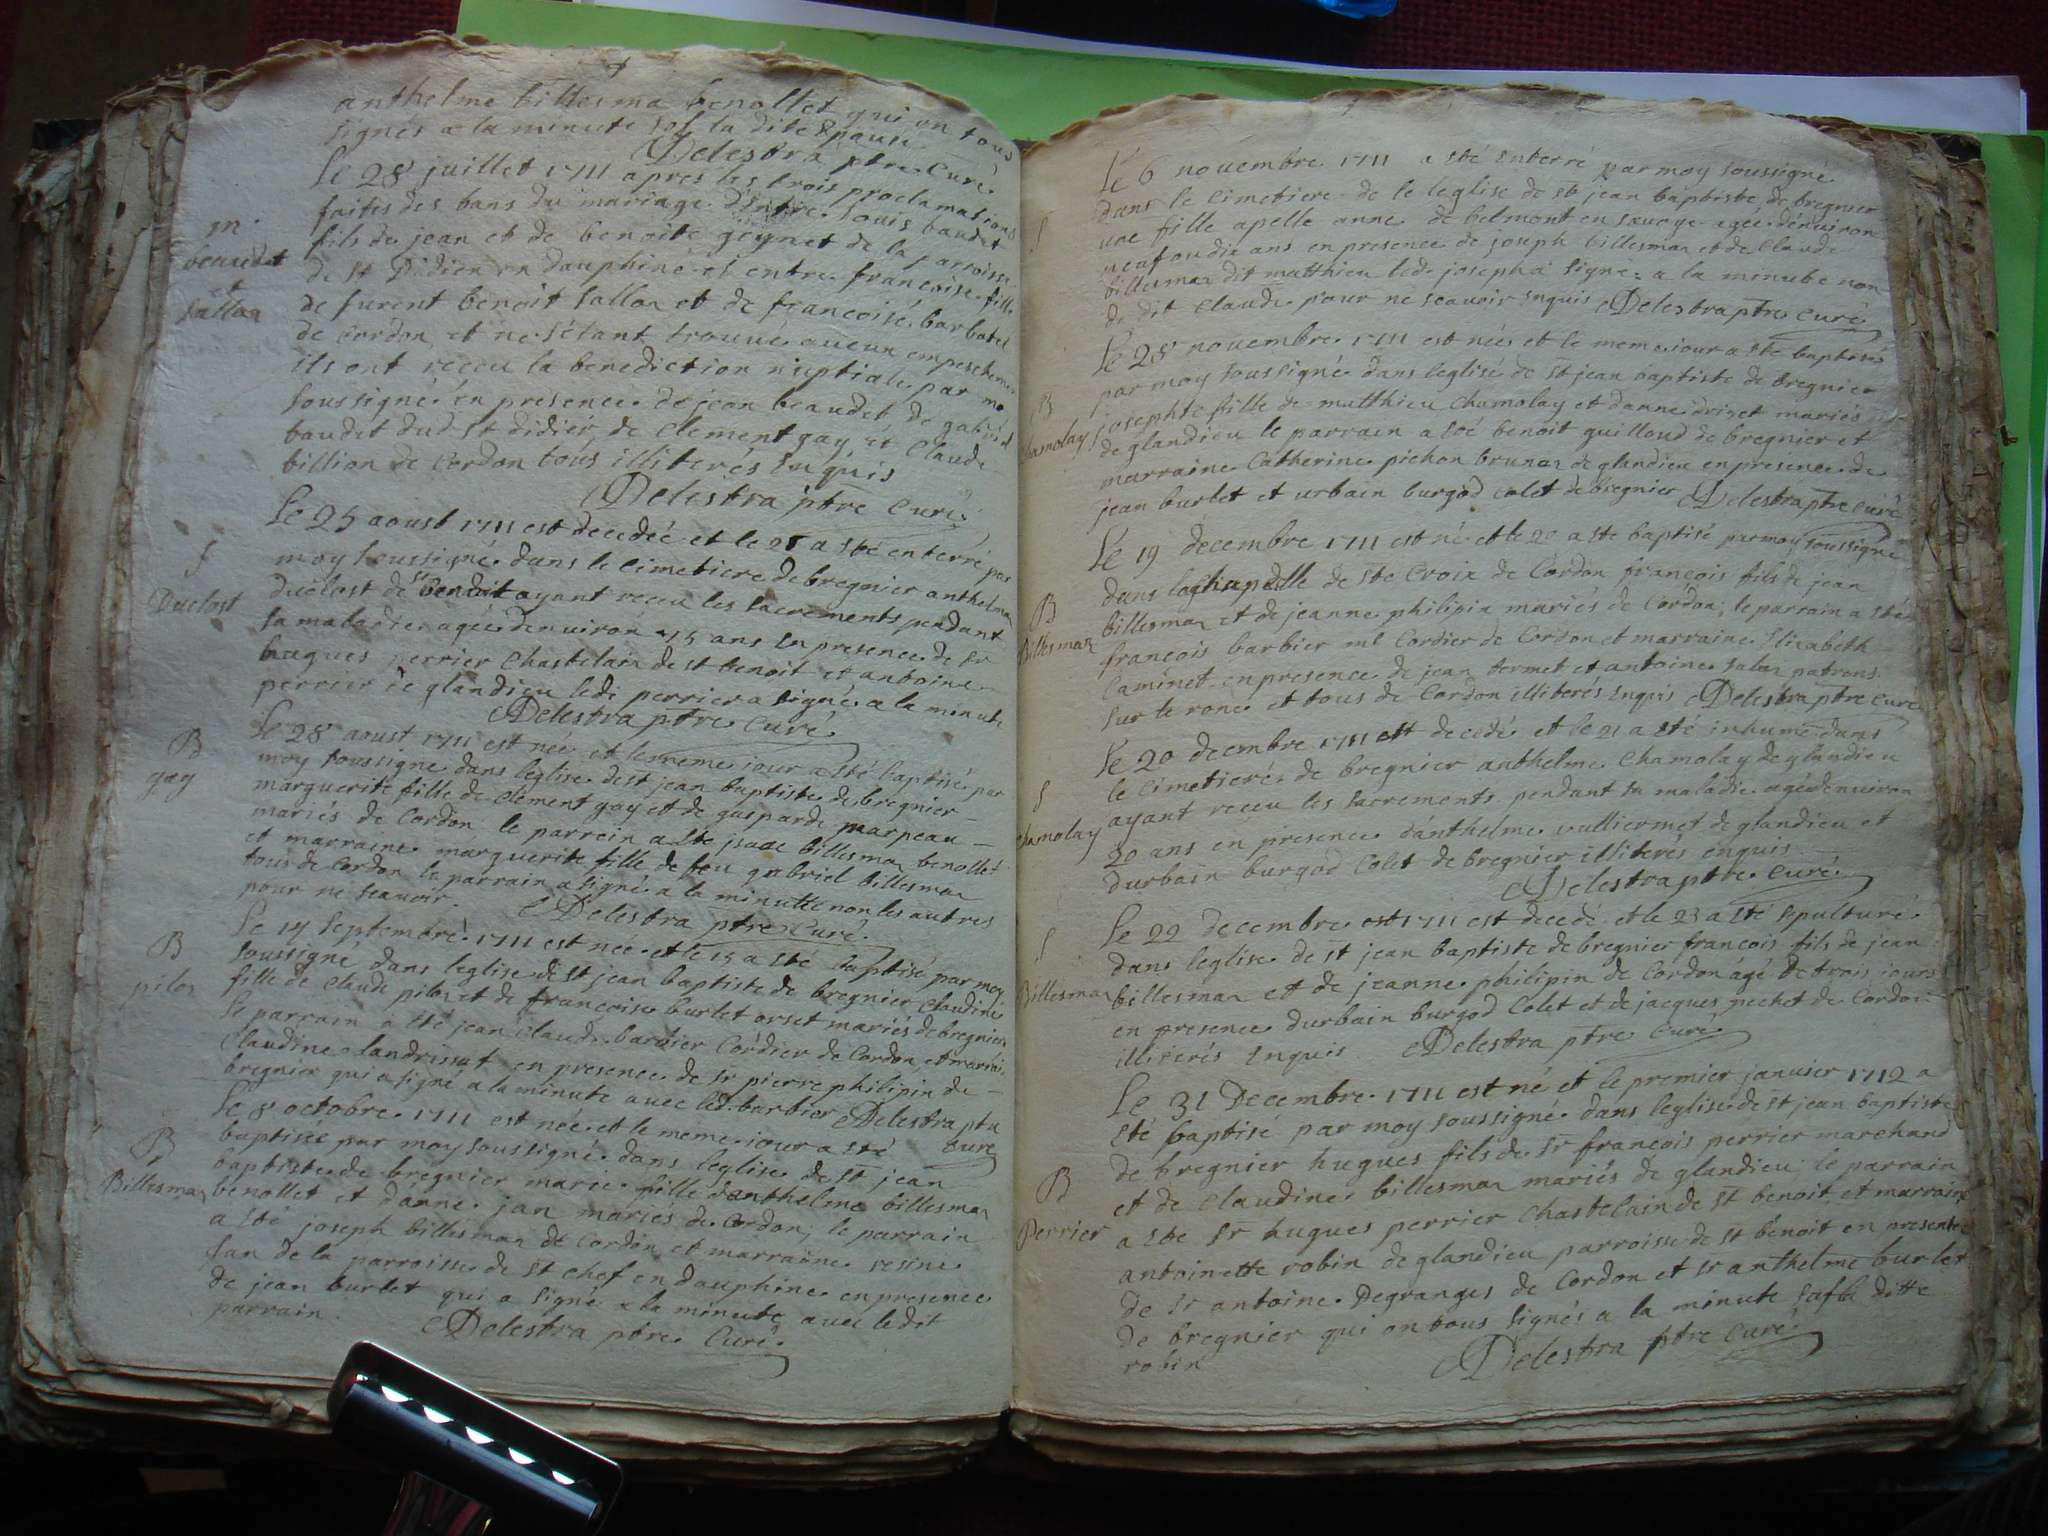 anthelme billesmaz benollet qui on tous
signés a la minute sof la dite Epouse
Delestra ptre Curé
Le 28 juillet 1711 apres les trois proclamations
faites des bans du mariage d'entre louis baudet
fils de jean et de benoite geynet de la parroisse
de st Didier en dauphiné et entre francoise fille
de furent benoit sallaz et de francoise barbatel
de Cordon et ne s'étant trouvé aucun empeschement
ils ont receu la benediction nuptiale par mo
soussigné en présence de jean beaudet de gabriel
baudet dud st didier de Clement gay et Claude
billion de Cordon tous illiterés Enquis
Delestra ptre Curé
m.
beaudet
et
Sallaz
Le 25 aoust 1711 est decedée et le 28 a Eté enterré par
moy soussigné dans le Cimetiere de bregnier anthelma
duclost de st benoit ayant receu les sacrements pendant
sa maladie agée denuiron 45 ans En presence de sr
hugues perrier Chastelain de st benoit et antoine
perrier de glandieu ledi perrier a signé a la minute
Delestra ptre Curé
S
Duclost
Le 28 aoust 1711 est née et le meme iour a Eté baptisé par
moy soussigné dans l'eglise de st jean baptiste de bregnier
marguerite fille de Clement gay et de gasparde marpeau
mariés de Cordon le parrein a Ete jsaac billesmaz benollet
et marraine marguerite fille de feu gabriel billesmaz
tous de Cordon le parrain a signé a la minutte non les autres
pour ne scauoir. Delestra ptre Curé
B
gay
Le 14 Septembre 1711 est née et le 15 a Eté baptisé par moy
soussigné dans l'eglise de st jean baptiste de bregnier Claudine
fille de Claude pilaz et de francoise burlet orset mariés de bregnier
le parrain a Eté jean Claude barbier Cordier de Cordon et marrai
Claudine landrissat en presence de sr pierre philipin de
bregnier qui a signé a la minute auec led. barbier Delestra ptre
Curé
B
pilaz
Le 8 octobre 1711 est née et le meme iour a Eté
baptisée par moy soussigné dans l'eglise de st jean
baptiste de bregnier marie fille danthelme billesmaz
benollet et danne jan mariés de Cordon; le parrain
a Eté joseph billesmaz de Cordon et marraine
jan de la parroisse de st chef en dauphine en presence
de jean burlet qui a signé a la minute auec ledit
parrain. Delestra ptre Curé
B
Billesmaz
Le 6 novembre 1711 a Eté Enterré par moy soussigné
dans le Cimetiere de le leglise de st jean baptiste de bregnier
une fille apelle anne de belmont en sauoye agée dénuiron
neuf ou dix ans en presence de joseph billesmaz et de Claude
billesmaz dit matthieu led. joseph a signé a la minute non
de dit Claude pour ne scauoir Enquis Delestra ptre Curé
S
Le 28 novembre 1711 est née et le meme iour a Eté baptisée
par moy soussigné dans leglise de st jean baptiste de bregnier
josephte fille de matthieu Chamolay et danne driset mariés
de glandieu le parrain a Eté benoit guilloud de bregnier et
marraine Catherine pichon brunaz de glandieu en presence de
jean burlet et urbain burgod Colet de bregnier Delestra ptre Curé
B
Chamolay
Le 19 decembre 1711 est né et le 20 a Ete baptisé par moy soussigné
dans la chapelle de Ste Croix de Cordon francois fils de jean
billesmaz et de jeanne philipin mariés de Cordon; le parrain a Eté
francois barbier me Cordier de Cordon et marraine Elizabeth
Caminet en presence de jean termet et antoine salaz patrons
sur le rone et tous de Cordon illiterés Enquis Delestra ptre Curé
B
Billesmaz
Le 20 decembre 1711 est decedé et le 21 a Eté inhumé dans
le Cimetiere de bregnier anthelme Chamolay de glandieu
ayant receu les sacrements pendant sa maladie agé denuiron
20 ans en presence danthelme vulliermet de glandieu et
durbain burgod Colet de bregnier illiterés enquis
Delestra ptre Curé
S
Chamolay
Le 22 decembre 1711 est decedé et le 23 a Eté sepulturé
dans leglise de st jean baptiste de bregnier francois fils de jean
billesmaz et de jeanne philipin de Cordon agé de trois iours
en presence durbain burgod Colet et de jacques pechet de Cordon
illiterés Enquis Delestra ptre Curé
S
Billesmaz
Le 31 Decembre 1711 est né et le premier janvier 1712 a
Eté baptisé par moy soussigné dans leglise de st jean baptiste
de bregnier hugues fils de Sr francois perrier marchand
et de Claudine billesmaz mariés de glandieu le parrain
a Ete Sr hugues perrier Chastelain de st benoit et marraine
antoinette robin de glandieu parroisse de st benoit en presence
de Sr antoine Degranges de Cordon et Sr anthelme burlet
de bregnier qui on tous signés a la minute saf la ditte
robin Delestra ptre Curé
B
Perrier